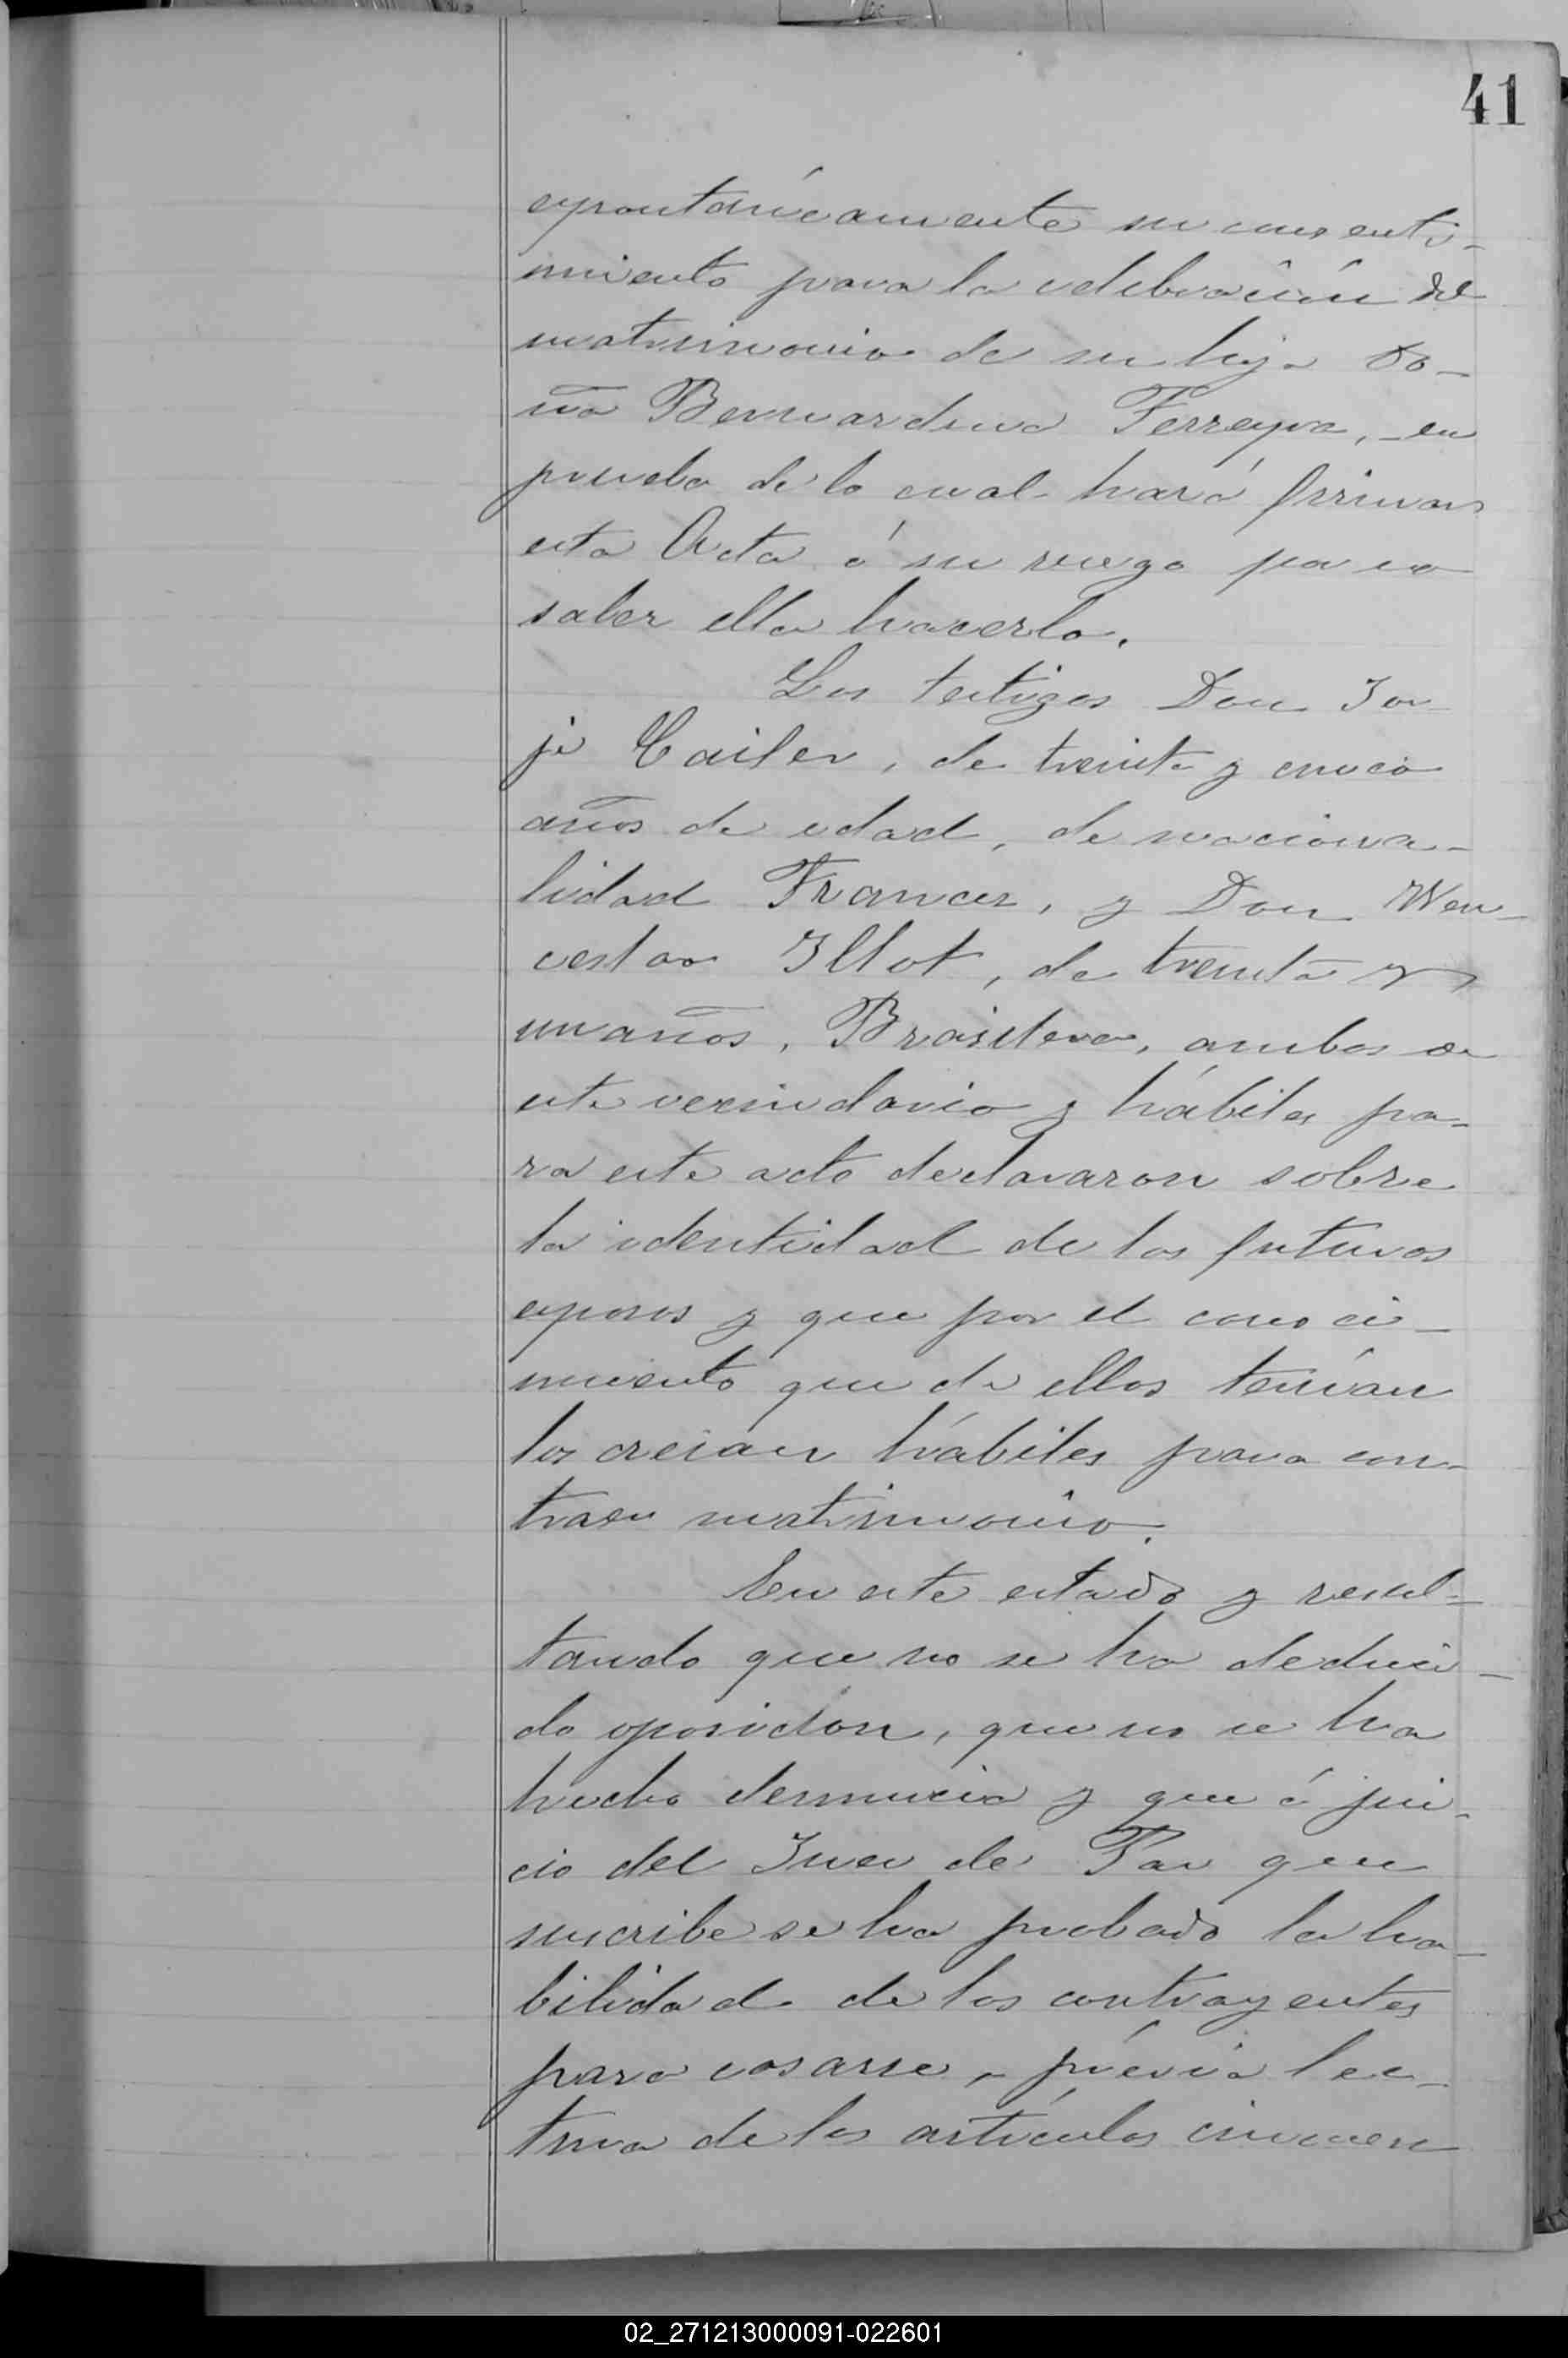 41
espontanéamente su consenti-
miento para la celebración del
matrimonio de su hija Do-
ña Bernardina Ferreyra, - en
prueba de lo cual hará firmar
esta Acta á su ruego por no
saber ella hacerlo.
Los testigos Don Jor-
je Cailer, de treinta y cinco
años de edad, de naciona-
lidad Frances, y Don Wen-
ceslao Illot, de treinta y
un años, Brasilero, ambos de
este vecindario y hábiles pa-
ra este acto declararon sobre
la identidad de los futuros
esposos y que por el conoci-
miento que de ellos tenían
los creian hábiles para con-
traer matrimonio.
En este estado y resul-
tando que no se ha deduci-
do oposicion, que no se ha
hecho denuncia y que á jui-
cio del Juez de Paz que
suscribe se ha probado la ha-
bilidad de los contrayentes
para casarse, prévia lec-
tura de los artículos cincuen
02_271213000091-022601